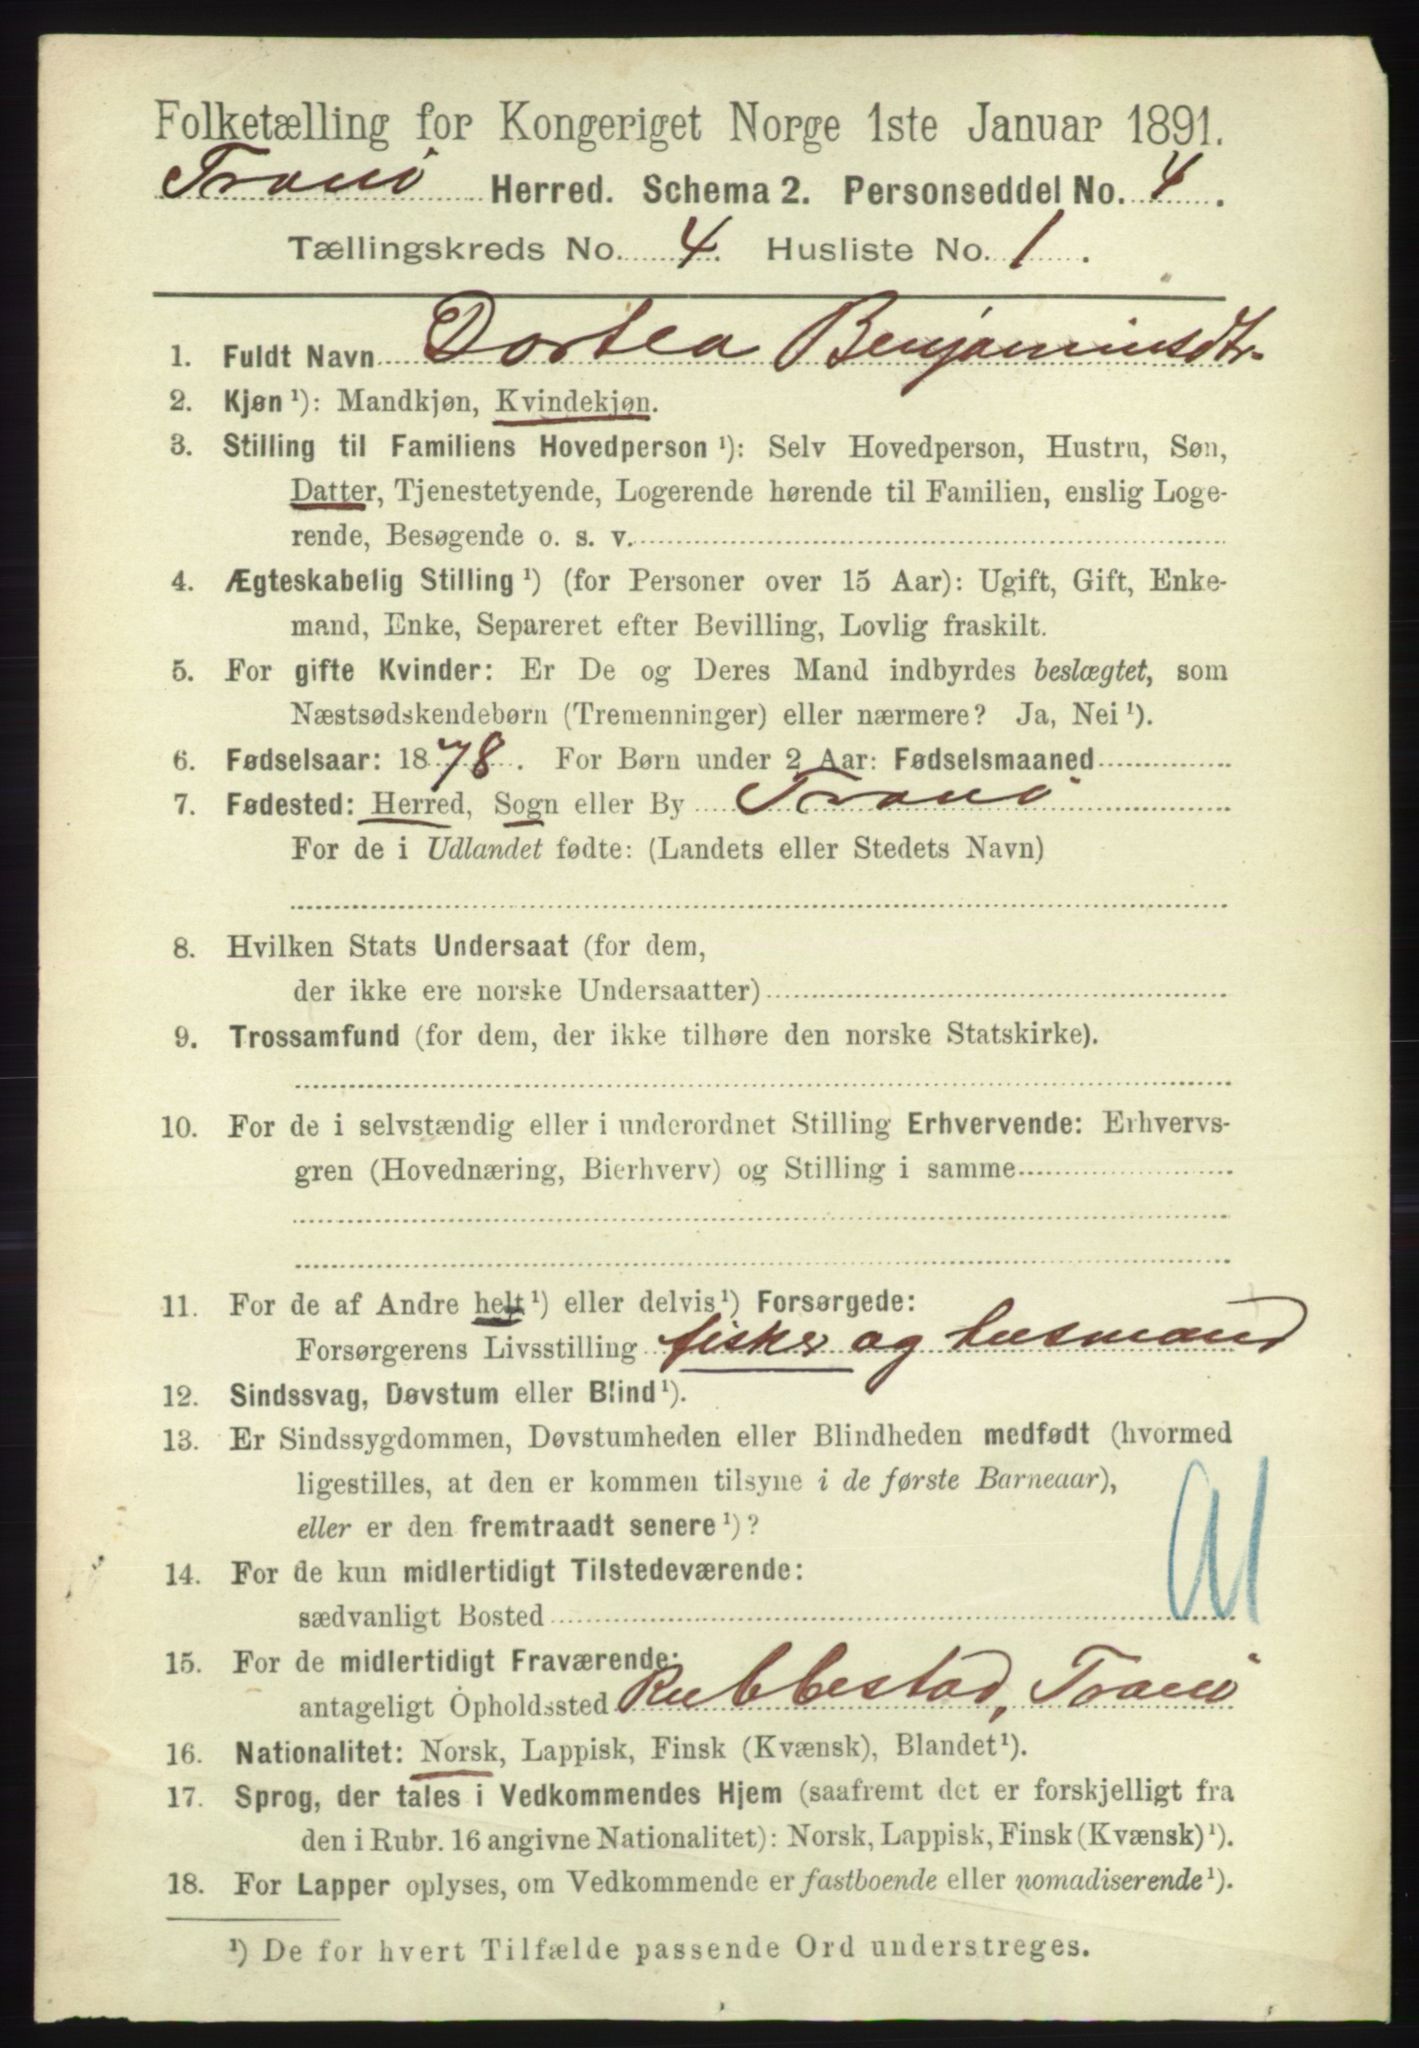 Folketælling for Kongeriget Norge 1ste Januar 1891.
Tranö Herred. Schema 2. Personseddel No. 4.
Tællingskreds No. 4. Husliste No. 1.
1. Fuldt Navn Dortea Benjaminsdtr.
2. Kjøn ¹): Mandkjøn, Kvindekjøn.
3. Stilling til Familiens Hovedperson ¹): Selv Hovedperson, Hustru, Søn,
Datter, Tjenestetyende, Logerende hørende til Familien, enslig Loge-
rende, Besøgende o. s. v.
4. Ægteskabelig Stilling ¹) (for Personer over 15 Aar): Ugift, Gift, Enke-
mand, Enke, Separeret efter Bevilling, Lovlig fraskilt.
5. For gifte Kvinder: Er De og Deres Mand indbyrdes beslægtet, som
Næstsødskendebørn (Tremenninger) eller nærmere? Ja, Nei ¹).
6. Fødselsaar: 1878. For Børn under 2 Aar: Fødselsmaaned
7. Fødested: Herred, Sogn eller By Tranö
For de i Udlandet fødte: (Landets eller Stedets Navn)
8. Hvilken Stats Undersaat (for dem,
der ikke ere norske Undersaatter)
9. Trossamfund (for dem, der ikke tilhøre den norske Statskirke).
10. For de i selvstændig eller i underordnet Stilling Erhvervende: Erhvervs-
gren (Hovednæring, Bierhverv) og Stilling i samme
11. For de af Andre helt ¹) eller delvis ¹) Forsørgede:
Forsørgerens Livsstilling fisker og husmand
12. Sindssvag, Døvstum eller Blind ¹).
13. Er Sindssygdommen, Døvstumheden eller Blindheden medfødt (hvormed
ligestilles, at den er kommen tilsyne i de første Barneaar),
eller er den fremtraadt senere ¹)?
14. For de kun midlertidigt Tilstedeværende:
sædvanligt Bosted
15. For de midlertidigt Fraværende:
antageligt Opholdssted Rubbestad, Tranö
16. Nationalitet: Norsk, Lappisk, Finsk (Kvænsk), Blandet ¹).
17. Sprog, der tales i Vedkommendes Hjem (saafremt det er forskjelligt fra
den i Rubr. 16 angivne Nationalitet): Norsk, Lappisk, Finsk (Kvænsk) ¹).
18. For Lapper oplyses, om Vedkommende er fastboende eller nomadiserende ¹).
¹) De for hvert Tilfælde passende Ord understreges.